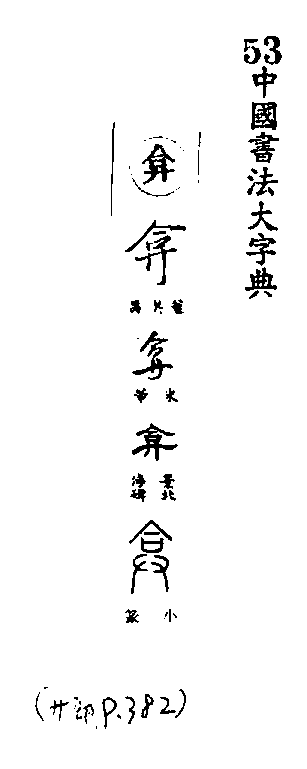 53 中國書法大字典
弇
弇
弇
米芾
弇
弇
小篆
(廾部 P.382)